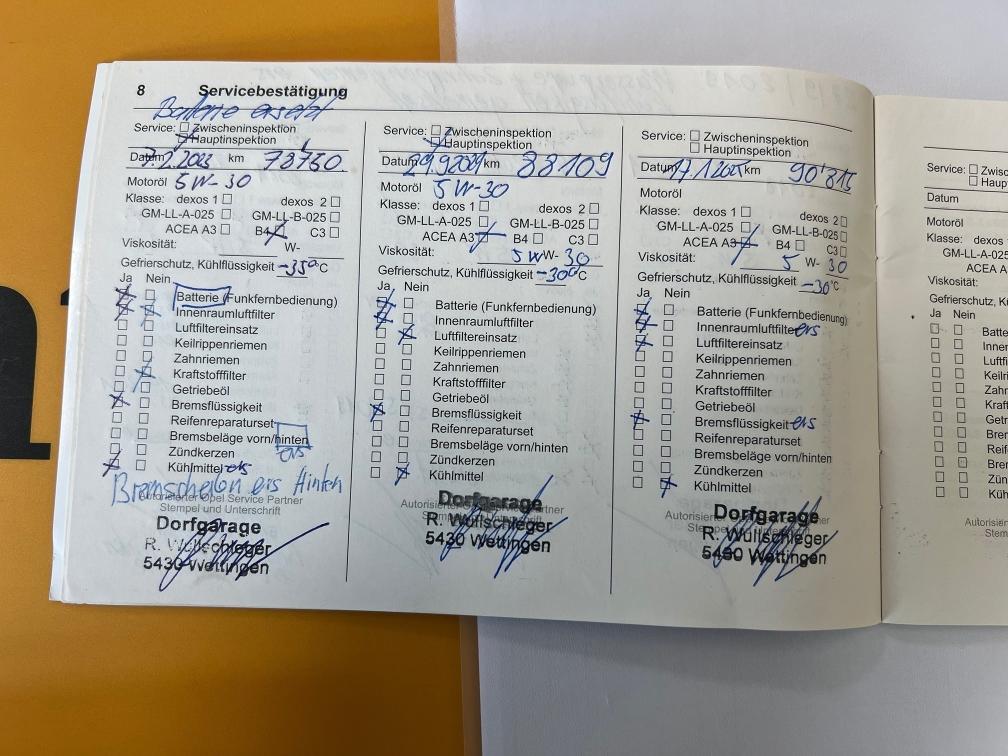 8 Servicebestätigung
Batterie ersetzt
Service: Zwischeninspektion
Hauptinspektion
Datum 7.2.2023 km 78'750
Motoröl 5W-30
Klasse: dexos 1 dexos 2
GM-LL-A-025 GM-LL-B-025
ACEA A3 B4 C3
Viskosität: W-
Gefrierschutz, Kühlflüssigkeit -35°C
Ja Nein
Batterie (Funkfernbedienung)
Innenraumluftfilter
Luftfiltereinsatz
Keilrippenriemen
Zahnriemen
Kraftstofffilter
Getriebeöl
Bremsflüssigkeit
Reifenreparaturset
Bremsbeläge vorn/hinten
ers
Zündkerzen
Kühlmittel ers
Bremscheiben ers Hinten
Autorisierter Opel Service Partner
Stempel und Unterschrift
Dorfgarage
R. Wullschleger
5430 Wettingen
Service: Zwischeninspektion
Hauptinspektion
Datum 29.9.2024 km 88109
Motoröl 5W-30
Klasse: dexos 1 dexos 2
GM-LL-A-025 GM-LL-B-025
ACEA A3 B4 C3
Viskosität: 5W W- 30
Gefrierschutz, Kühlflüssigkeit -30°C
Ja Nein
Batterie (Funkfernbedienung)
Innenraumluftfilter
Luftfiltereinsatz
Keilrippenriemen
Zahnriemen
Kraftstofffilter
Getriebeöl
Bremsflüssigkeit
Reifenreparaturset
Bremsbeläge vorn/hinten
Zündkerzen
Kühlmittel
Dorfgarage
R. Wullschleger
5430 Wettingen
Service: Zwischeninspektion
Hauptinspektion
Datum 17.1.2025 km 90'815
Motoröl
Klasse: dexos 1 dexos 2
GM-LL-A-025 GM-LL-B-025
ACEA A3 B4 C3
Viskosität: 5 W- 30
Gefrierschutz, Kühlflüssigkeit -30°C
Ja Nein
Batterie (Funkfernbedienung)
Innenraumluftfilter ers
Luftfiltereinsatz
Keilrippenriemen
Zahnriemen
Kraftstofffilter
Getriebeöl
Bremsflüssigkeit ers
Reifenreparaturset
Bremsbeläge vorn/hinten
Zündkerzen
Kühlmittel
Dorfgarage
R. Wullschleger
5430 Wettingen
Service: Zwisc
Haupt
Datum
Motoröl
Klasse: dexos
GM-LL-A-02
ACEA A
Viskosität:
Gefrierschutz, Kü
Ja Nein
Batte
Innen
Luftf
Keilri
Zahn
Kraft
Getr
Brem
Reif
Bren
Zün
Küh
Autoris
Stem